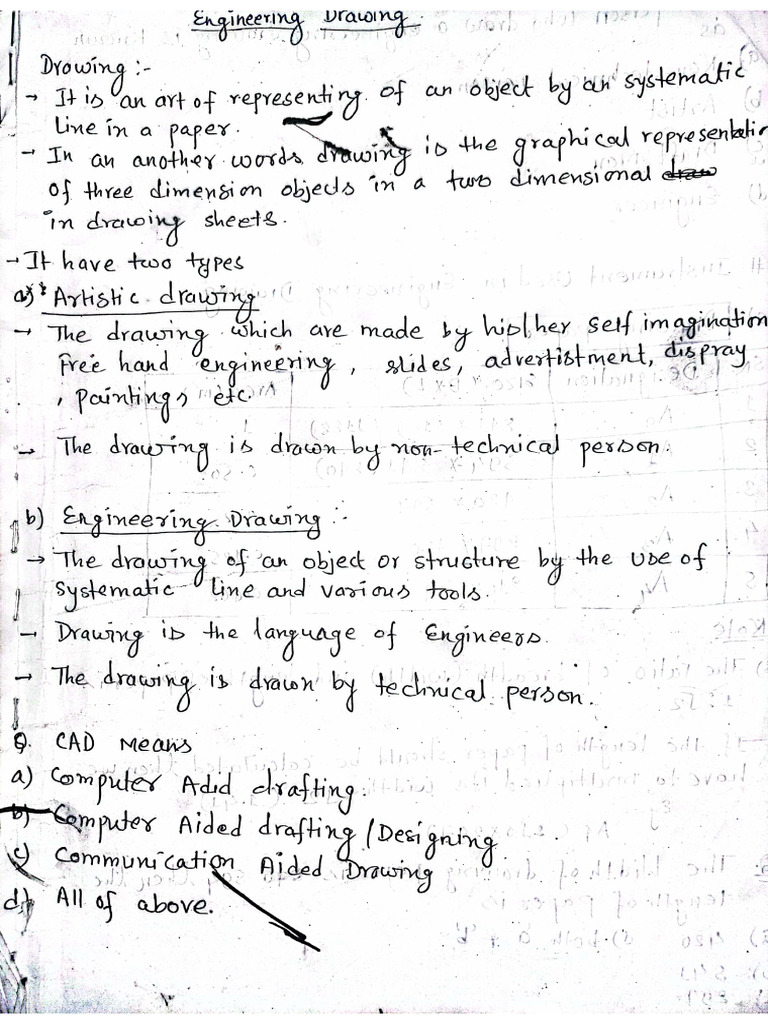 Engineering Drawing.
Drawing :-
→ It is an art of representing of an object by an systematic
Line in a paper.
→ In an another words drawing is the graphical representation
of three dimension objects in a two dimensional draw
in drawing sheets.
→ It have two types
a) Artistic drawing
→ The drawing which are made by his/her self imagination
Free hand engineering, slides, advertistment, dispray
, paintings etc.
→ The drawing is drawn by non-technical person.
b) Engineering Drawing :-
→ The drawing of an object or structure by the use of
systematic line and various tools.
→ Drawing is the language of Engineers.
→ The drawing is drawn by technical person.
Q. CAD Means
a) Computer Adid drafting.
b) Computer Aided drafting / Designing
c) Communication Aided Drawing
d) All of above.